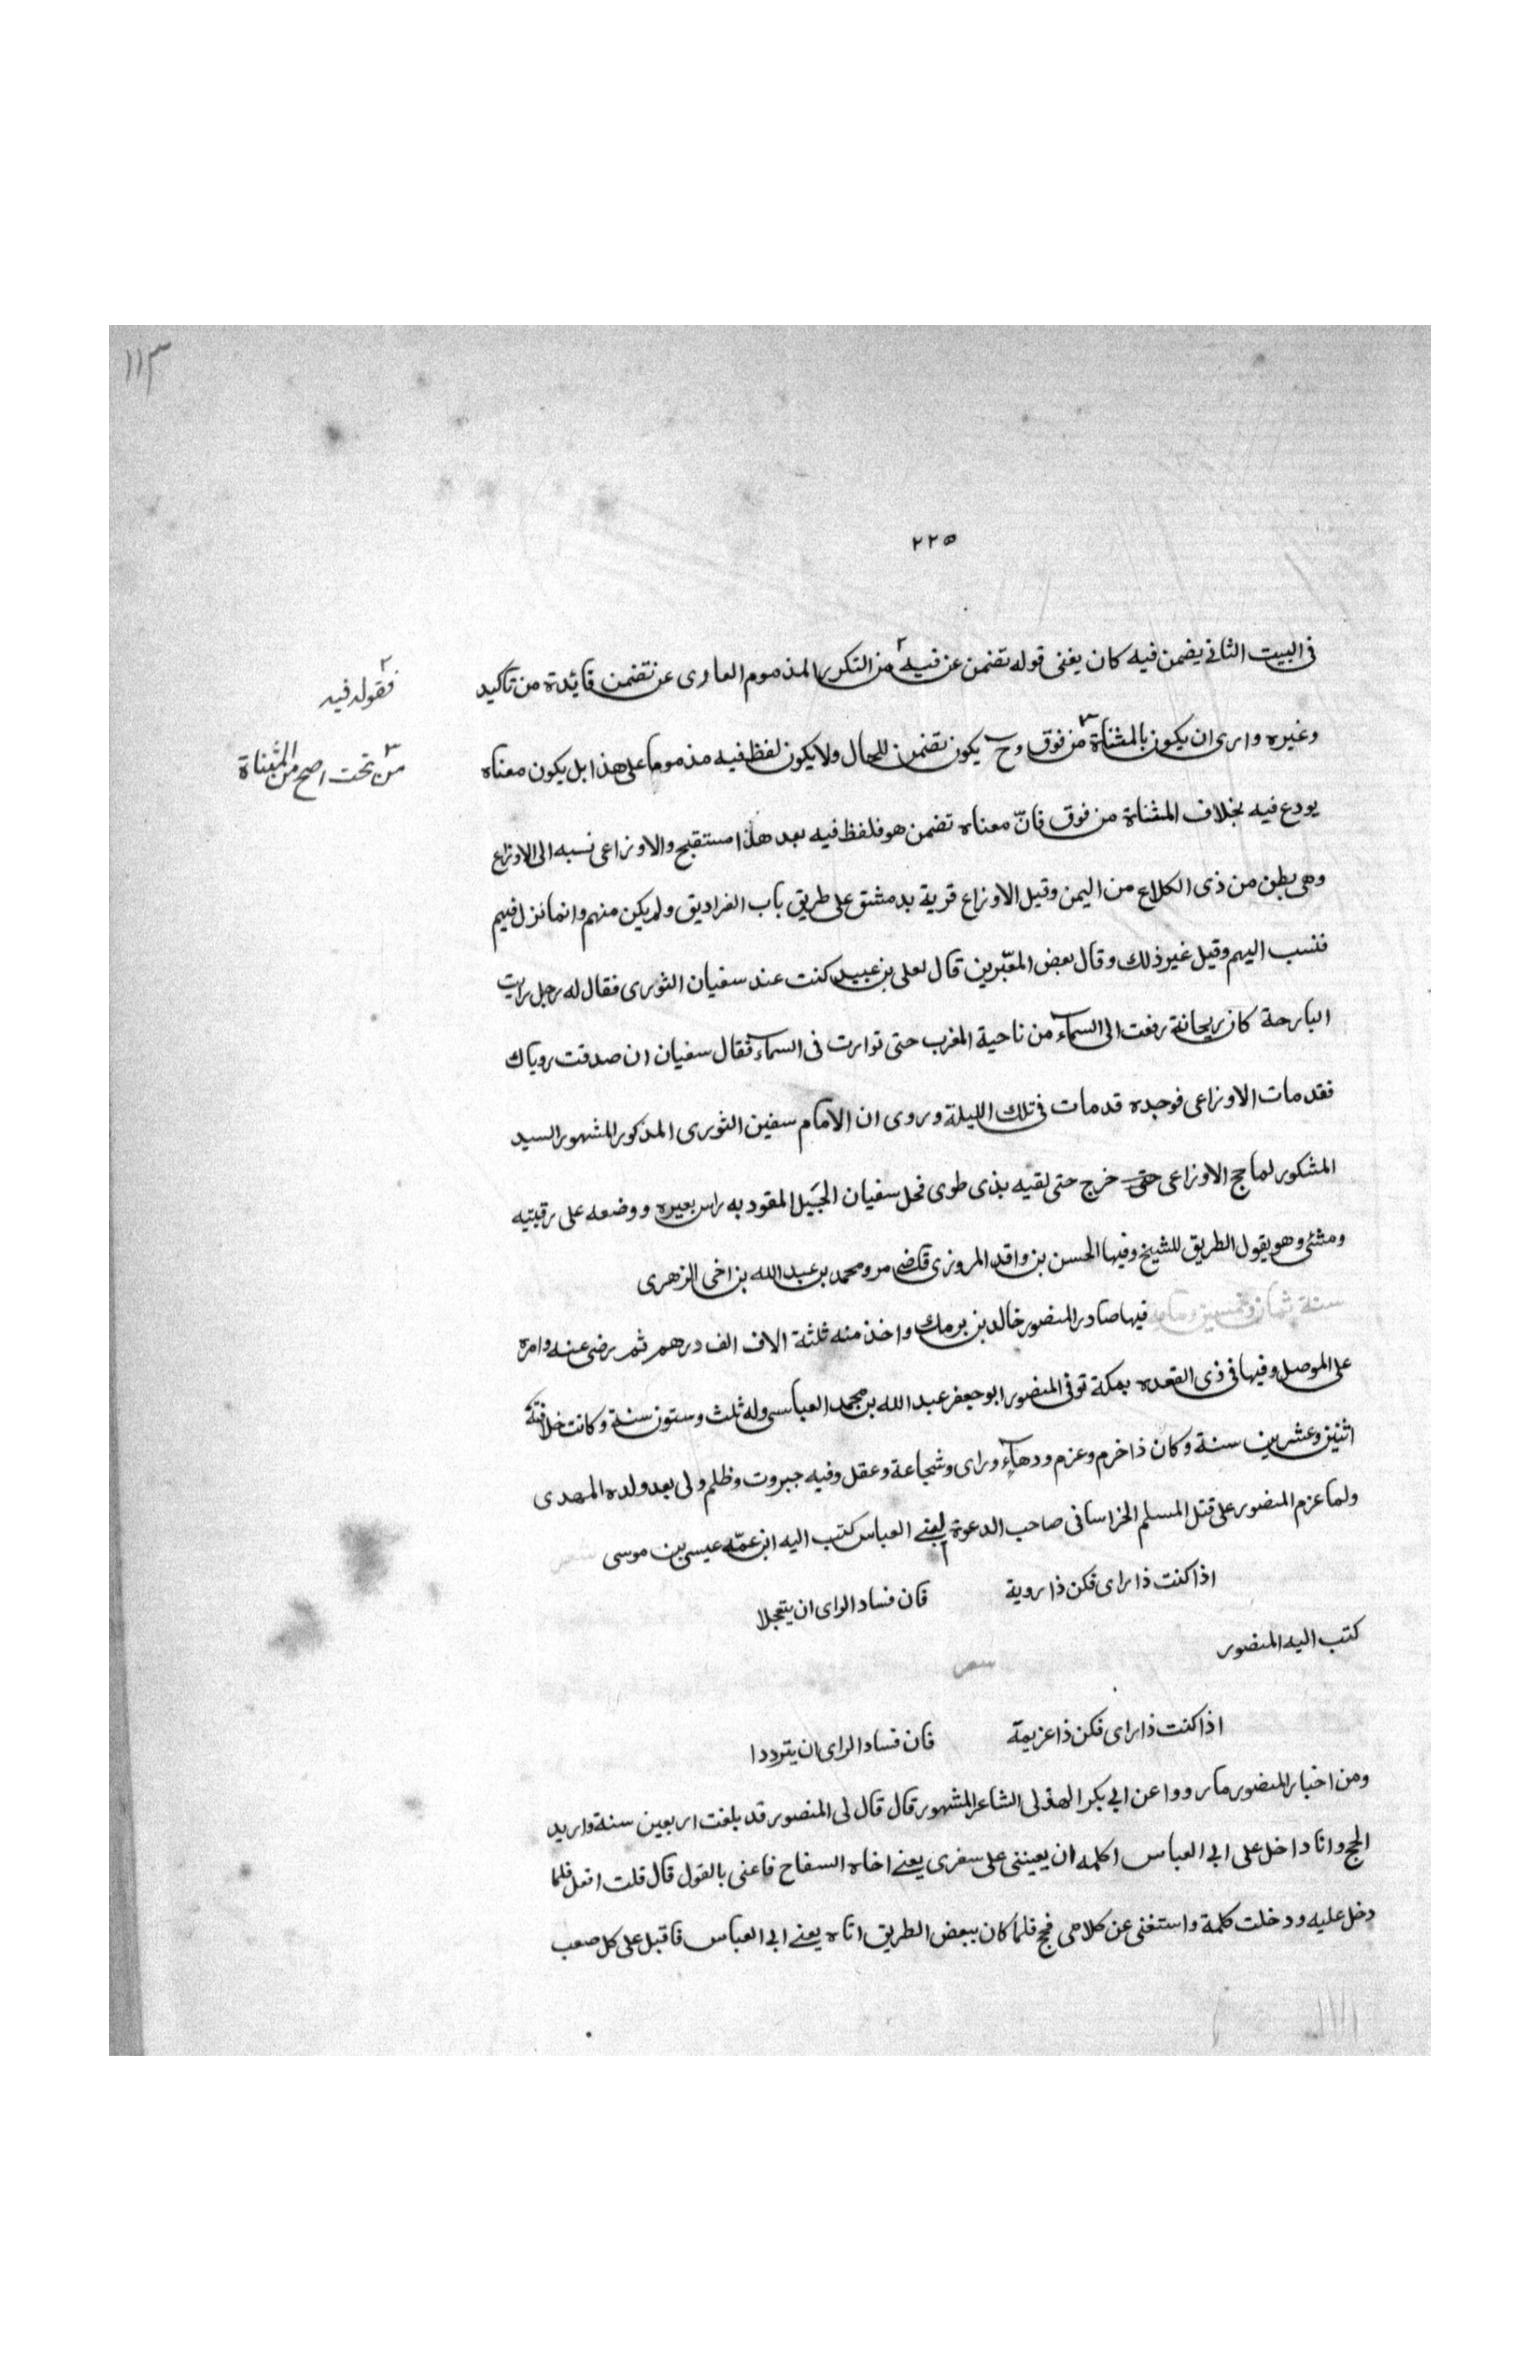 ١١٣
٢٢٥
فى البيت الثانى يضمن فيه كان يغنى قوله تضمن عن فيه ٢ من التكرير المذموم العارى عن تضمن فايدة من تاكيد
٢ فقوله فيه
وغيره وارى ان يكون بالمثناة ٣ من فوق وح يكون تضمن للحال ولا يكون لفظ فيه مذموما على هذا بل يكون معناه
٣ من تحت اصح من المثناة
يودع فيه بخلاف المثناة من فوق فانّ معناه تضمن هو فلفظ فيه بعد هذا مستقبح والاوزاعى نسبه الى الاوزاع
وهى بطن من ذى الكلاع من اليمن وقيل الاوزاع قرية بدمشق على طريق باب الفراديق ولم يكن منهم وانما نزل فيهم
فنسب اليهم وقيل غير ذلك وقال بعض المعبّرين قال لعلى بن عبيد كنت عند سفيان الثورى فقال له رجل رايت
البارحة كان ريحانة رفعت الى السماء من ناحية المغرب حتى توارت فى السماء فقال سفيان ان صدقت روياك
فقد مات الاوزاعى فوجده قد مات فى تلك الليلة وروى ان الامام سفين الثورى المذكور المشهور السيد
المشكور لما حج الاوزاعى حتى خرج حتى لقيه بذى طوى فحل سفيان الحبيل المقود به راس بعيره ووضعه على رقبتيه
ومشى وهو يقول الطريق للشيخ وفيها الحسن بن واقد المروزى قاضى مرو ومحمد بن عبد الله بن اخى الزهرى
سنة ثمان وخمسين وماية فيها صادر المنصور خالد بن برمك واخذ منه ثلثة الاف الف درهم ثم رضى عنه وامره
على الموصل وفيها فى ذى القعده بمكة توفى المنصور ابو جعفر عبد الله بن محمد العباسى وله ثلث وستون سنة وكانت خلافته
اثنين وعشرين سنة وكان ذا خرم وعزم ودهآء وراى وشجاعة وعقل وفيه جبروت وظلم ولى بعد ولده المهدى
ولما عزم المنصور على قتل المسلم الخراسانى صاحب الدعوة لبنى العباس كتب اليه ابن عمّه عيسى بن موسى شعر
اذا كنت ذا راى فكن ذا روية فان فساد الراى ان يتعجلا
كتب اليه المنصور
شعر
اذا كنت ذا راى فكن ذا عزيمة فان فساد الراى ان يترددا
ومن اخبار المنصور ما رووا عن ابى بكر الهذلى الشاعر المشهور قال قال لى المنصور قد بلغت اربعين سنة واريد
الحج وانا داخل على ابى العباس اكلمه ان يعيننى على سفرى يعنى اخاه السفاح فاعنى بالقول قال قلت افعل فلما
دخل عليه ودخلت كلمة واستغنى عن كلامى فحج فلما كان ببعض الطريق اتاه يعنى ابى العباس فاقبل على كل صعب